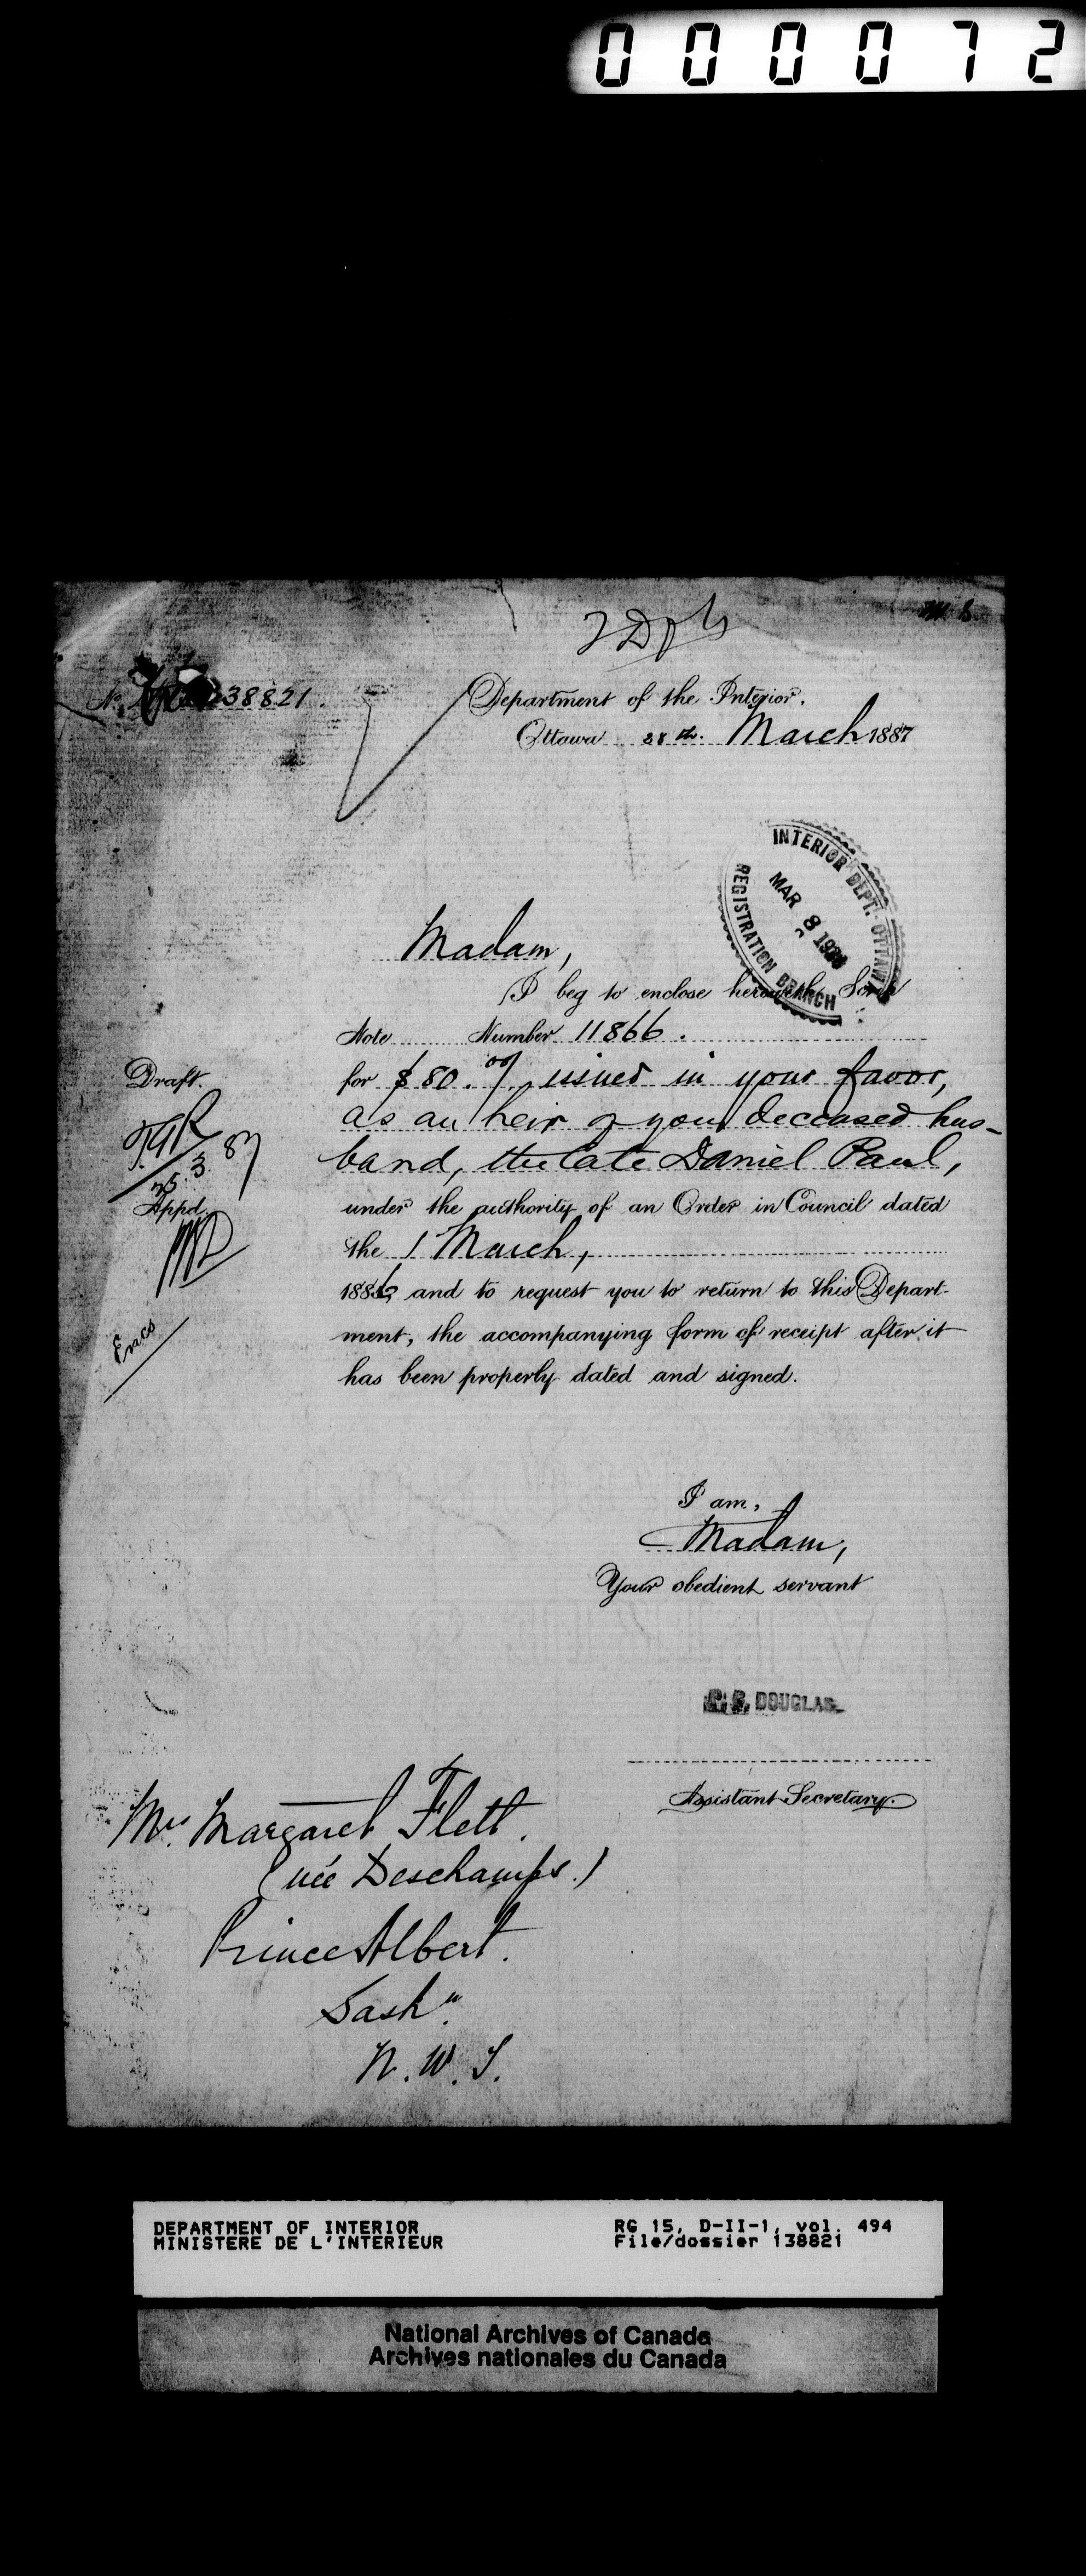 000072
No. 138821.
Department of the Interior.
Ottawa 28th. March 1887
INTERIOR DEPT. OTTAWA
MAR 8
REGISTRATION BRANCH
Madam,
I beg to enclose herewith Scrip
Note Number 11866.
Draft.
for $80.00/ issued in your favor,
as an heir of your deceased hus-
25.3.87
band, the late Daniel Paul,
Appd.
under the authority of an Order in Council dated
the 1 March,
1886, and to request you to return to this Depart-
Encs
ment, the accompanying form of receipt after it
has been properly dated and signed.
I am,
Madam,
Your obedient servant
DOUGLAS
Assistant Secretary.
Mrs. Margaret Flett.
(née Deschamps.)
Prince Albert.
Sask'n.
N.W.T.
DEPARTMENT OF INTERIOR
MINISTERE DE L'INTERIEUR
RG 15, D-II-1, vol. 494
File/dossier 138821
National Archives of Canada
Archives nationales du Canada